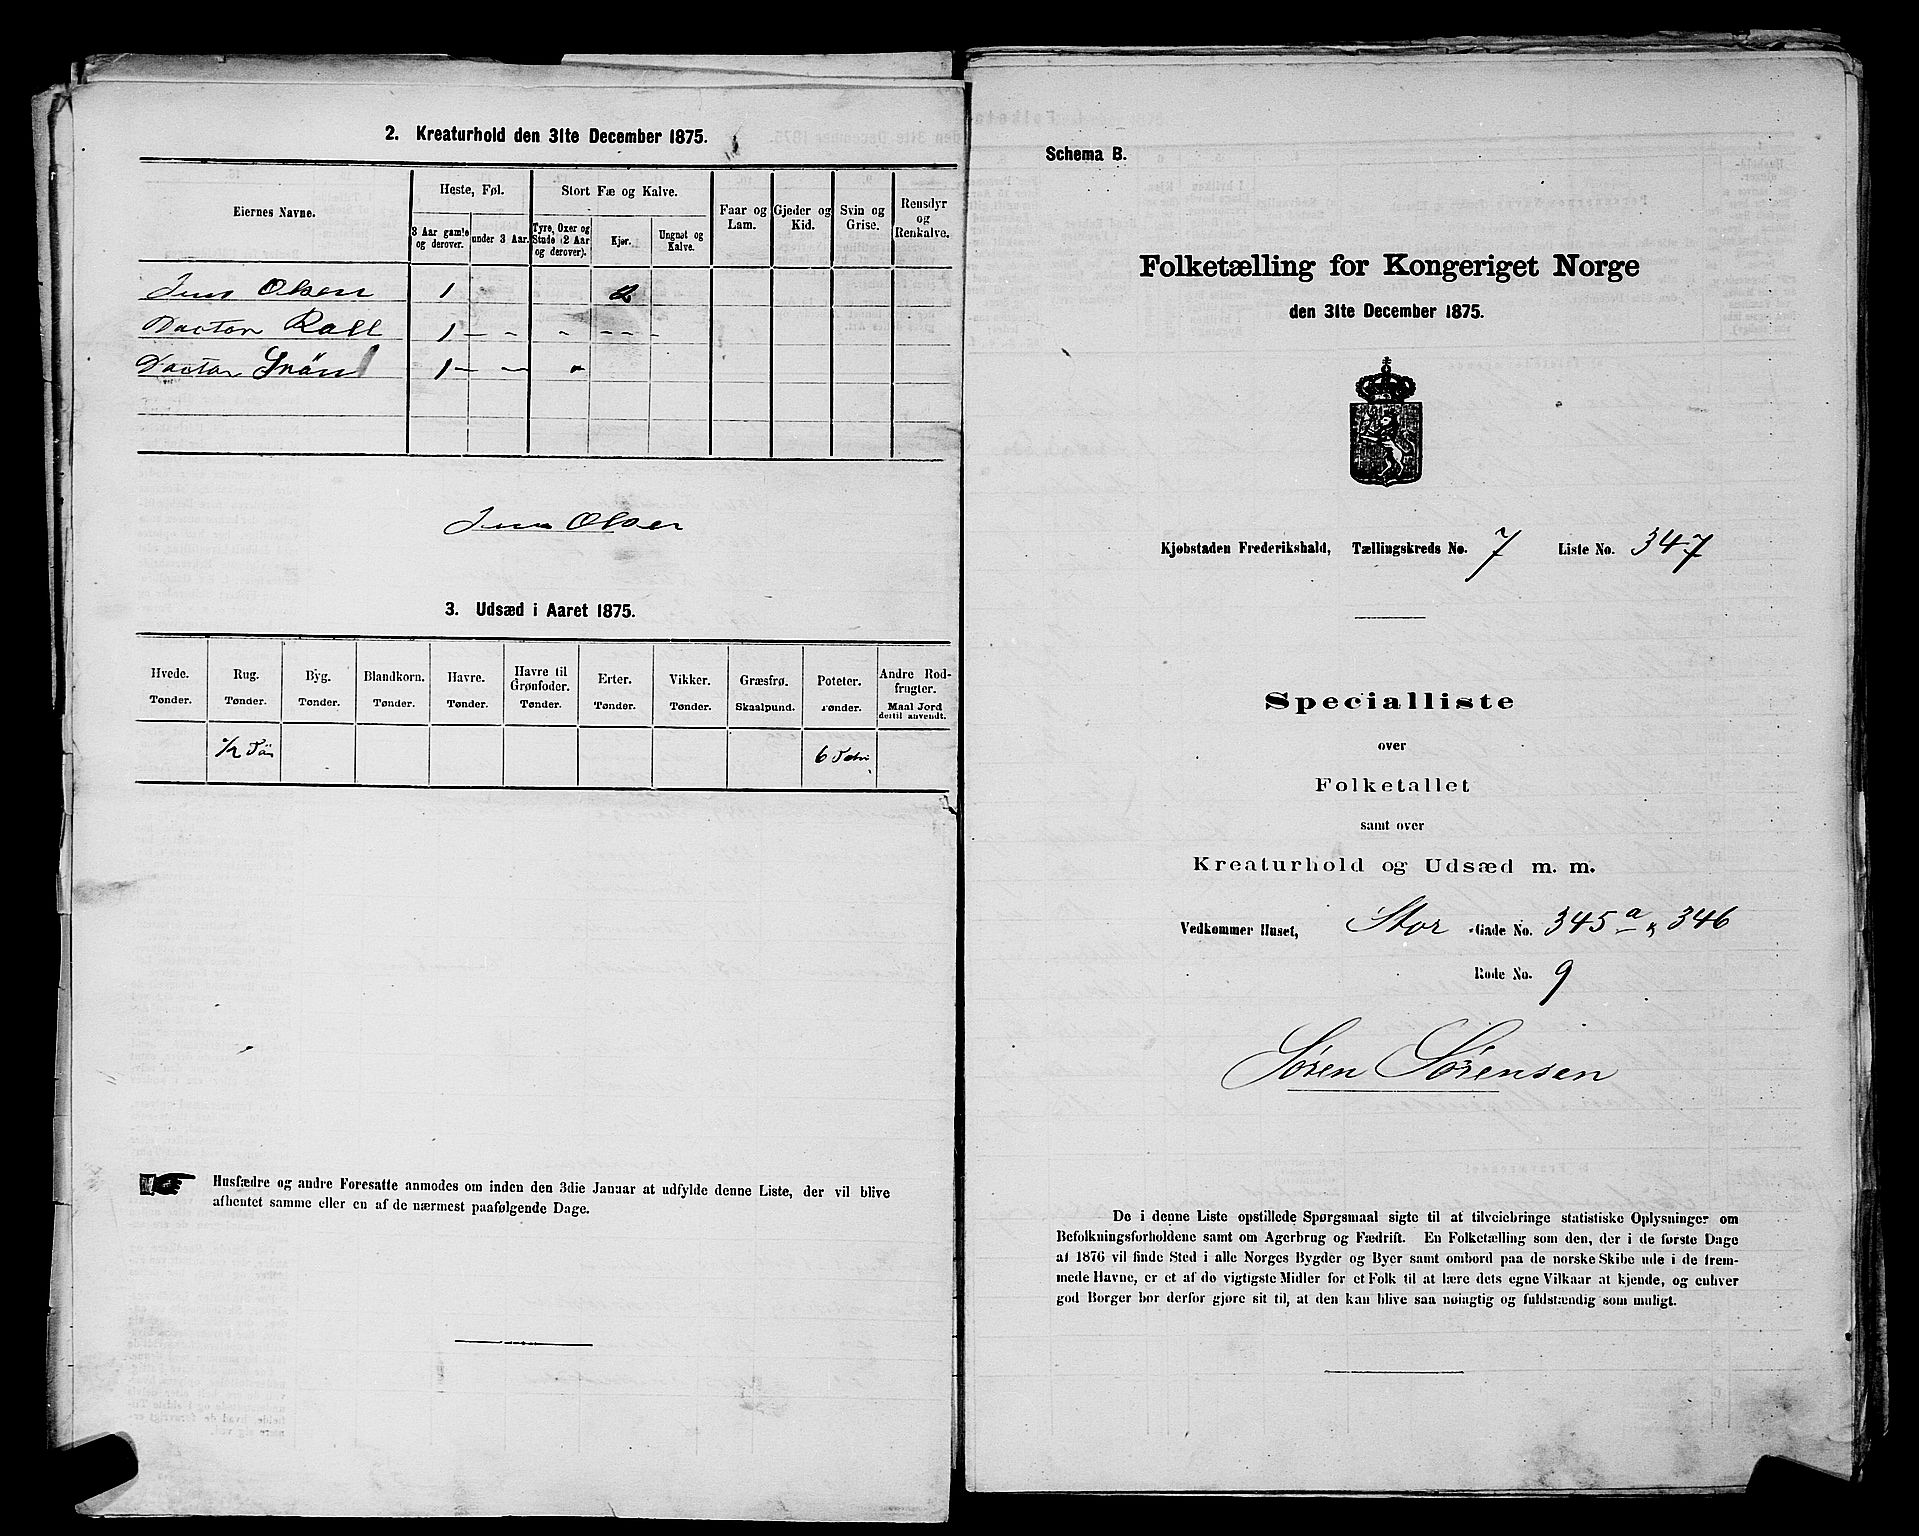 2. Kreaturhold den 31te December 1875.
Eiernes Navne.
Heste, Føl.
Stort Fæ og Kalve.
Faar og Lam.
Gjeder og Kid.
Svin og Grise.
Rensdyr og Renkalve.
3 Aar gamle og derover.
under 3 Aar.
Tyre, Oxer og Stude (2 Aar og derover).
Kjør.
Ungnøt og Kalve.
Jens Olsen 1 2
Doctor 1 - - - - - -
Doctor 1 - -
Jens Olsen
3. Udsæd i Aaret 1875.
Hvede. Tønder.
Rug. Tønder.
Byg. Tønder.
Blandkorn. Tønder.
Havre. Tønder.
Havre til Grønfoder. Tønder.
Erter. Tønder.
Vikker. Tønder.
Græsfrø. Skaalpund.
Poteter. Tønder.
Andre Rodfrugter. Maal Jord dertil anvendt.
1/2 6
Husfædre og andre Foresatte anmodes om inden den 3die Januar at udfylde denne Liste, der vil blive
afhentet samme eller en af de nærmest paafølgende Dage.
Schema B.
Folketælling for Kongeriget Norge
den 31te December 1875.
Kjøbstaden Frederikshald, Tællingskreds No. 7 Liste No. 347
Specialliste
over
Folketallet
samt over
Kreaturhold og Udsæd m. m.
Vedkommer Huset, Stor -Gade No. 345 a & 346
Rode No. 9
Søren Sørensen
De i denne Liste opstillede Spørgsmaal sigte til at tilveiebringe statistiske Oplysninger om
Befolkningsforholdene samt om Agerbrug og Fædrift. En Folketælling som den, der i de første Dage
af 1876 vil finde Sted i alle Norges Bygder og Byer samt ombord paa de norske Skibe ude i de frem-
mede Havne, er et af de vigtigste Midler for et Folk til at lære dets egne Vilkaar at kjende, og enhver
god Borger bør derfor gjøre sit til, at den kan blive saa nøiagtig og fuldstændig som muligt.